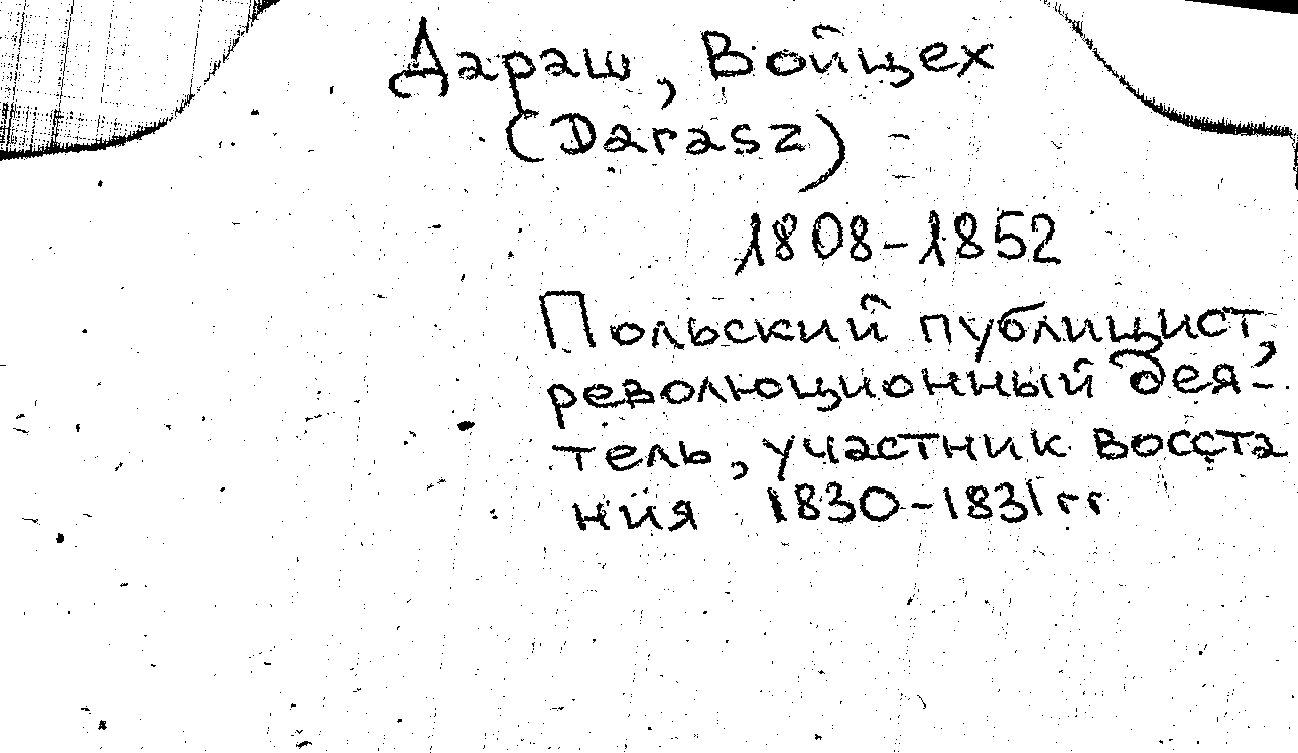 Дараш, Войцех
(Darasz)
1808-1852
Польский публицист,
революционный дея-
тель, участник восста
ния 1830-1831 гг